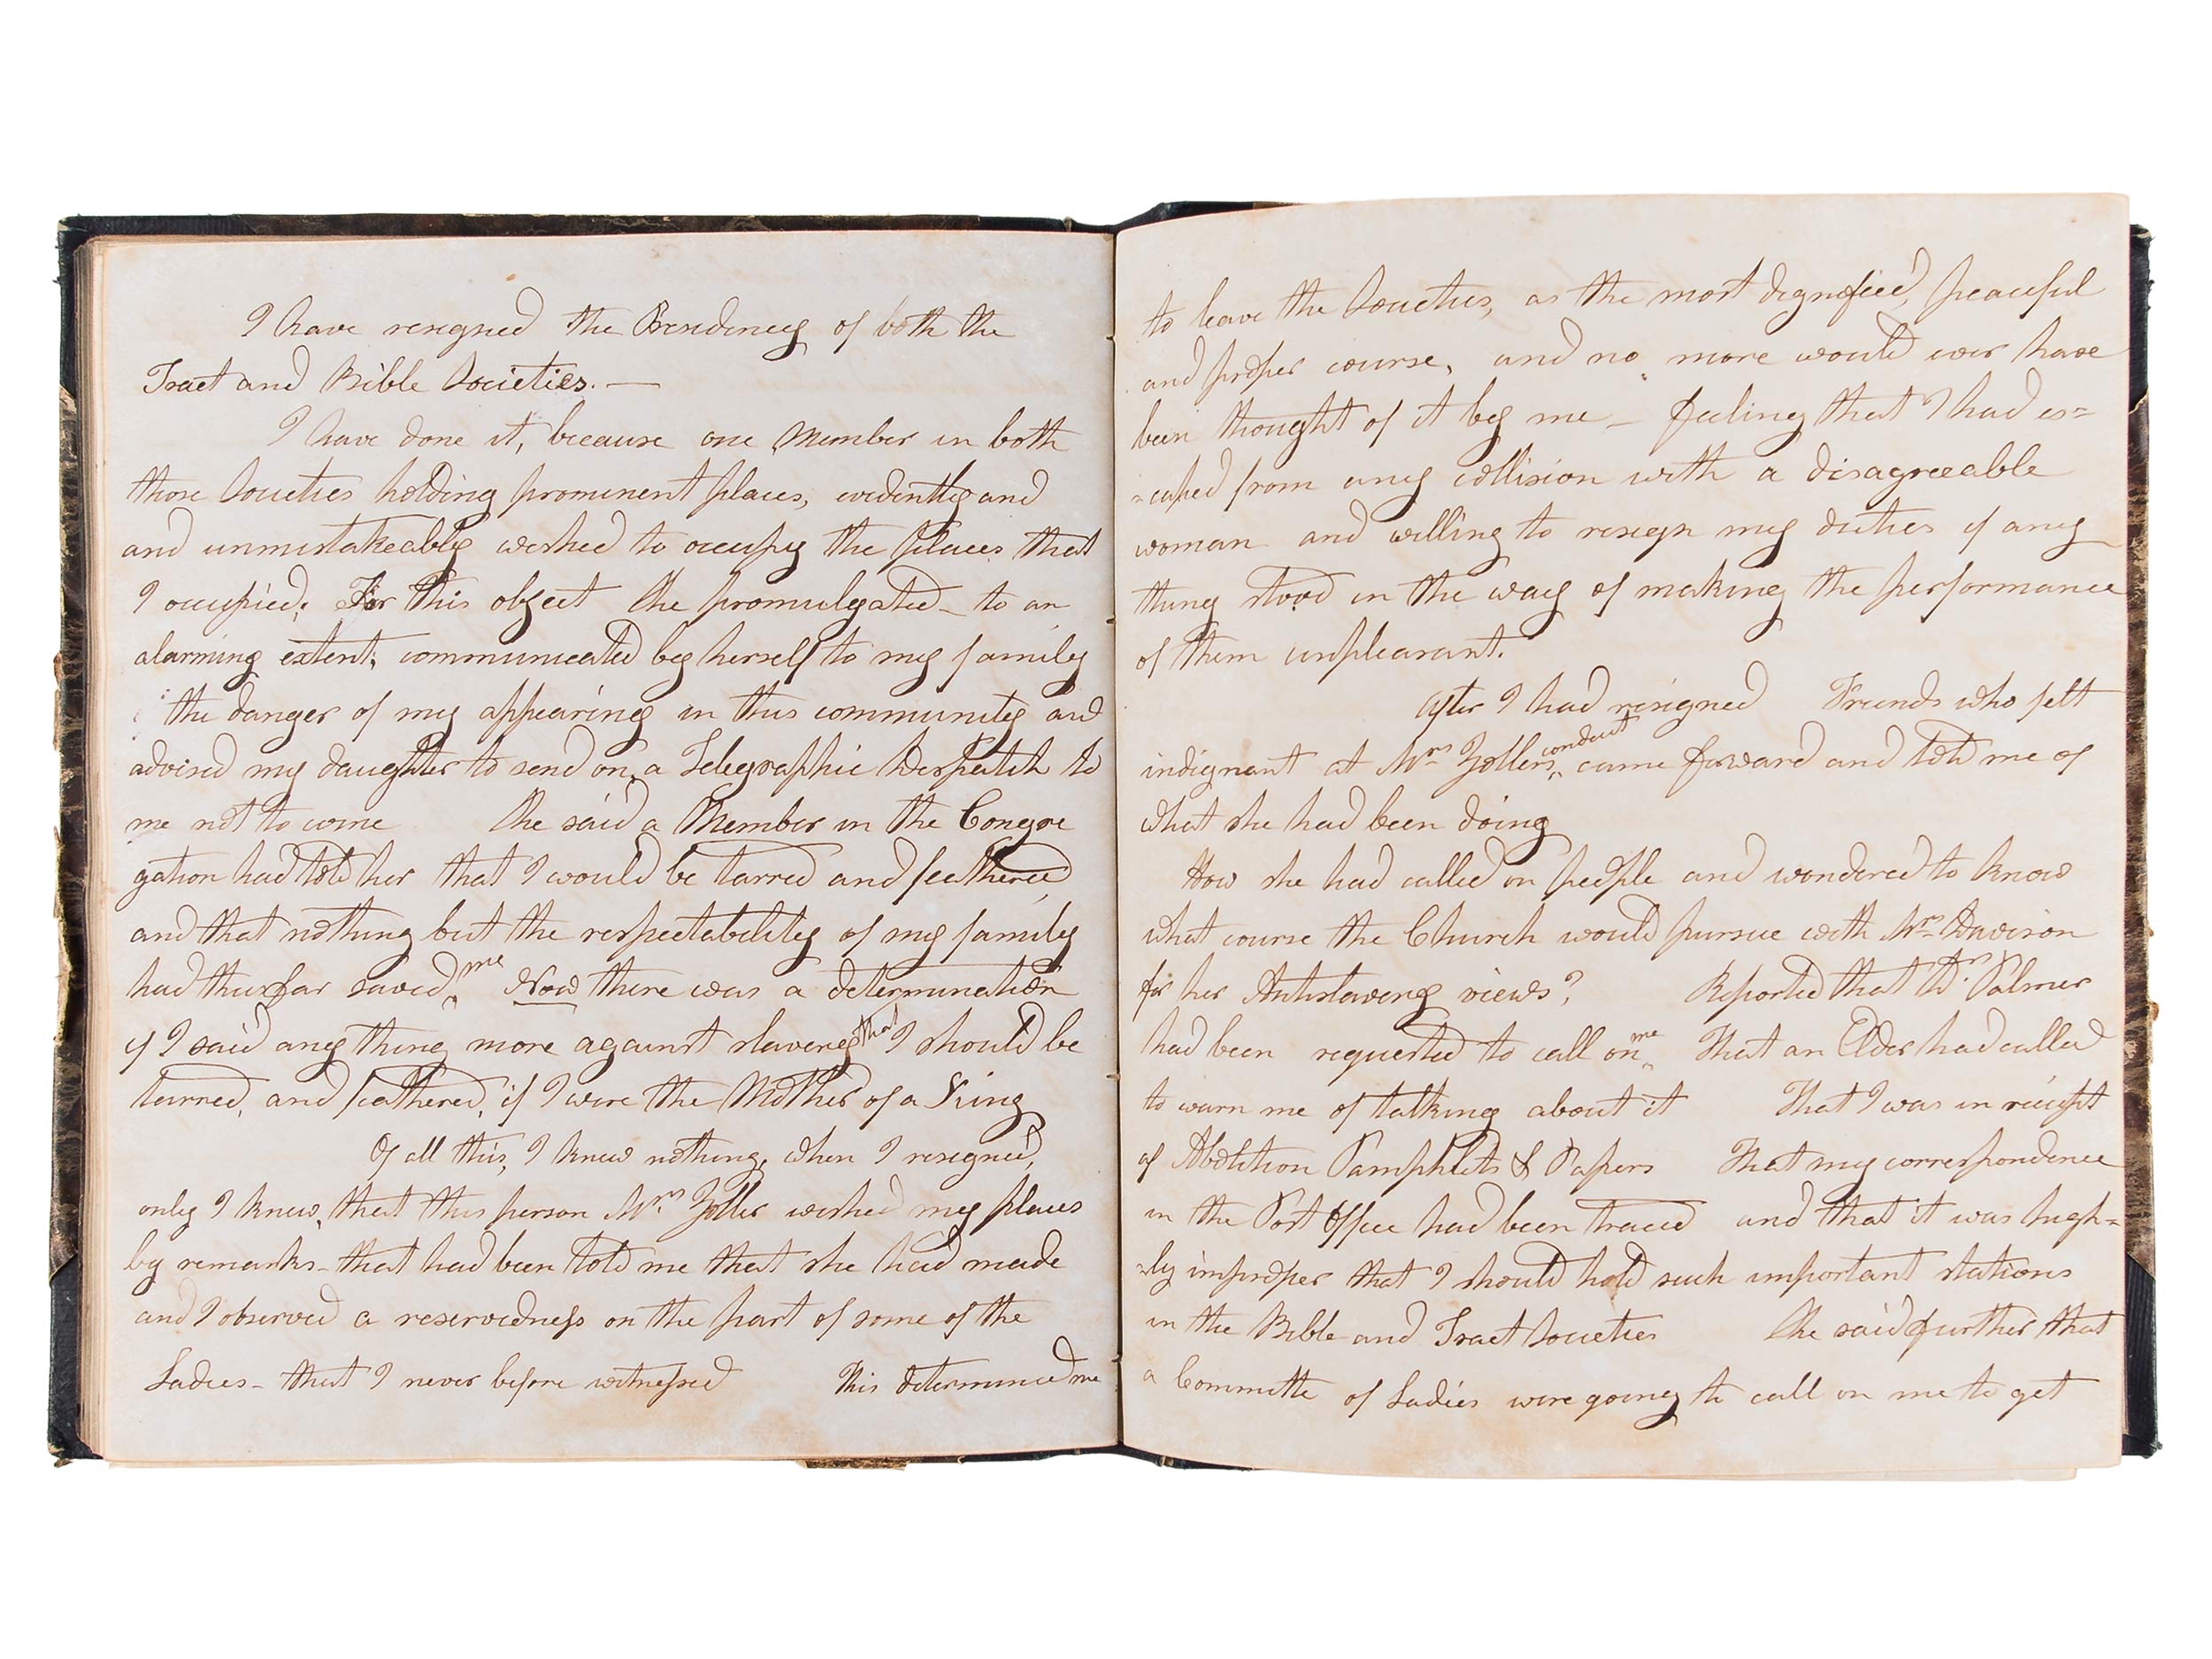 I have resigned the Presidency of both the
Tract and Bible Societies. —
I have done it, because one Member in both
those Societies holding prominent places, evidently and
and unmistakeably wished to occupy the places that
I occupied; For this object She promulgated - to an
alarming extent; communicated by herself to my family
the danger of my appearing in this community and
advised my daughter to send on a Telegraphic Despatch to
me not to come She said a Member in the Congre
gation had told her that I would be tarred and feathered
and that nothing but the respectability of my family
had thus far saved me Now there was a determination
if I said any thing more against slavery that I should be
tarred, and feathered, if I were the Mother of a King
Of all this, I knew nothing, when I resigned,
only I knew, that this person Mrs. Zoller wished my places
by remarks - that had been told me that she had made
and I observed a reservedness on the part of some of the
Ladies - that I never before witnessed This determined me
to leave the Societies, as the most dignified, peaceful
and proper course, and no more would ever have
been thought of it by me - feeling that I had es=
=caped from any collision with a disagreeable
woman and willing to resign my duties if any
thing stood in the way of making the performance
of them unpleasant.
After I had resigned Friends who felt
indignant at Mrs Zollers conduct came forward and told me of
what she had been doing
How she had called on people and wondered to know
what course the Church would pursue with Mrs Davison
for her Antislavery views? Reported that Dr. Palmer
had been requested to call on me That an Elder had called
to warn me of talking about it That I was in receipt
of Abolition Pamphlets & Papers That my correspondence
in the Post Office had been traced and that it was high=
=ly improper that I should hold such important stations
in the Bible and Tract Societies She said further that
a Committe of Ladies were going to call on me to get